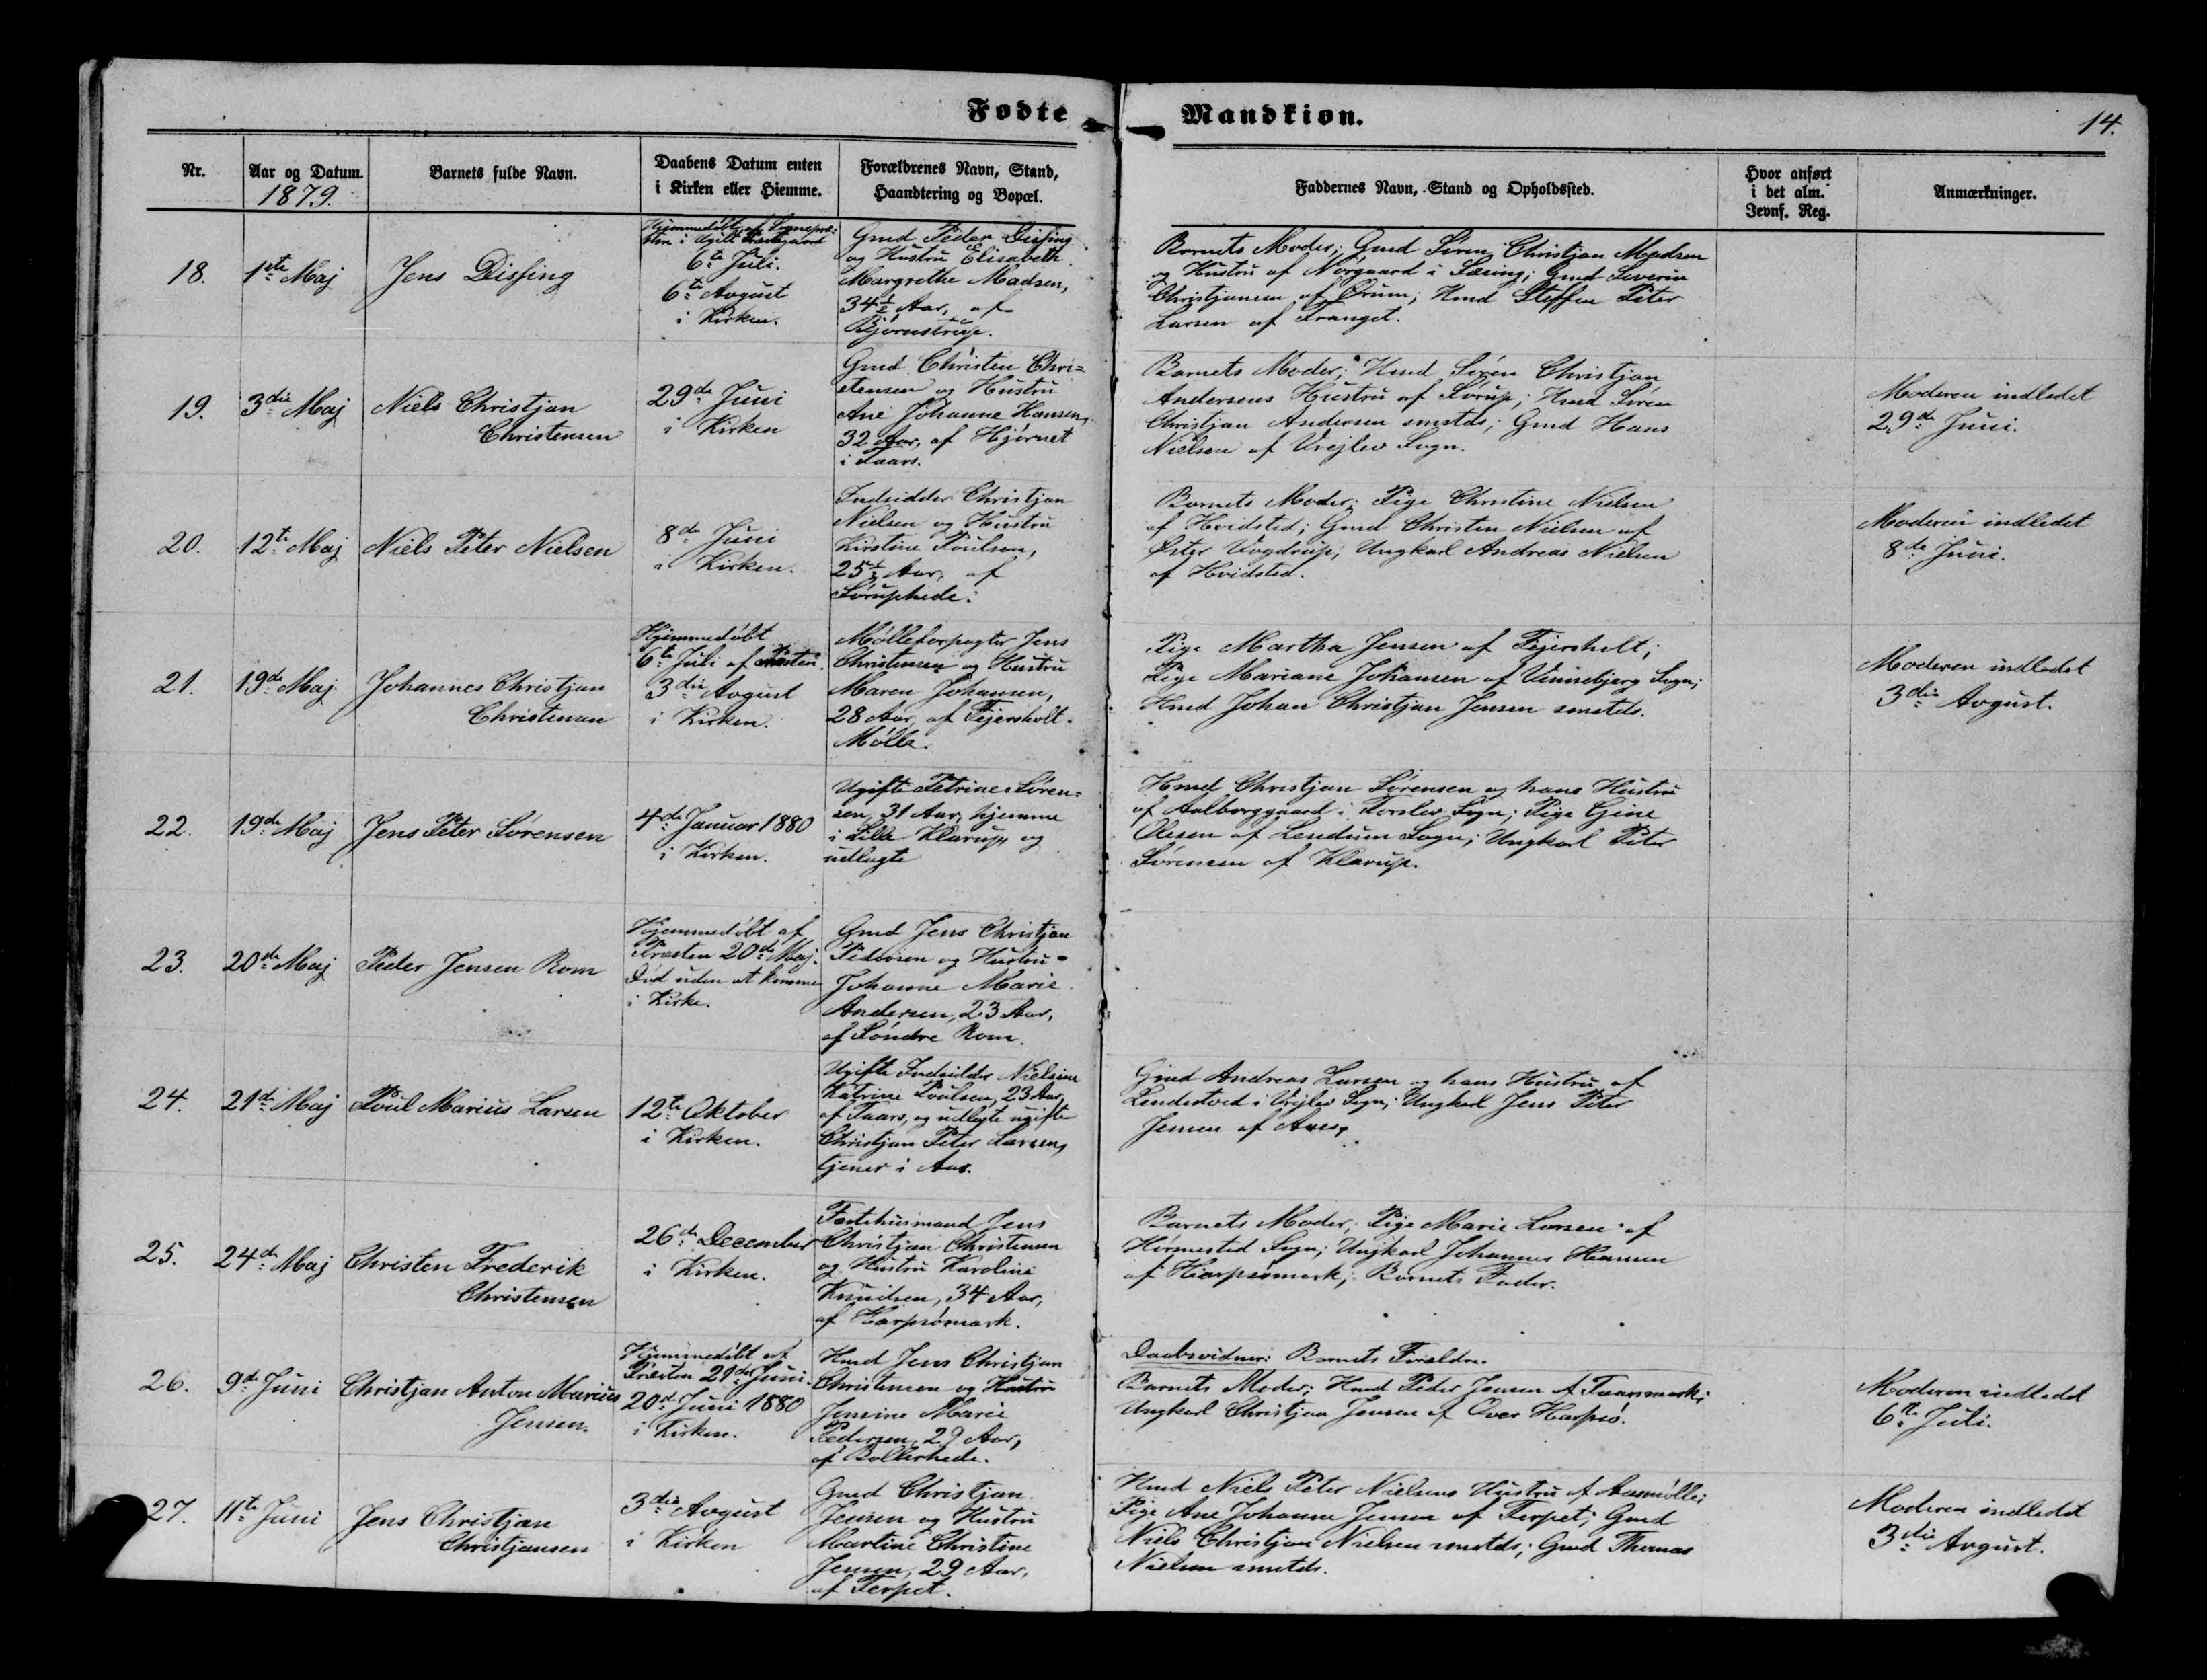 Fødte
Mandkiøn.
14.
Nr.
Aar og Datum.
1879.
Barnets fulde Navn.
Daabens Datum enten
i Kirken eller Hiemme.
Forældrenes Navn, Stand,
Haandtering og Bopæl.
Faddernes Navn, Stand og Opholdssted.
Hvor anført
i det alm.
Jevnf. Reg.
Anmærkninger.
18.
1ste Maj
Jens Dissing
Hjemmedøbt af Sognepræ-
sten i Ugilt Præstegaard
6te Juli.
6te Avgust
i Kirken.
Gmd Peder Dissing
og Hustru Elisabeth
Margrethe Madsen,
34½ Aar, af
Bjørnstrup.
Barnets Moder; Gmd Søren Christjan Madsen
og Hustru af Nørgaard i Sæsing; Gmd Severin
Christjansen af Ørum; Hmd Steffen Peter
Larsen af Tranget.
19.
3die Maj
Niels Christjan
Christensen
29de Juni
i Kirken
Gmd Christen Chri=
stensen og Hustru
Ane Johanne Hansen,
32 Aar, af Hjørnet
i Taars.
Barnets Moder; Hmd Søren Christjan
Andersens Hustru af Sørup; Hmd Søren
Christjan Andersen smstds; Gmd Hans
Nielsen af Vrejlev Sogn.
Moderen indledet
29de Juni.
20.
12te Maj
Niels Peter Nielsen
8de Juni
i Kirken.
Indsidder Christjan
Nielsen og Hustru
Kirstine Poulsen,
25½ Aar, af
Søruphede.
Barnets Moder; Pige Christine Nielsen
af Hvidsted; Gmd Christen Nielsen af
Øster Vogdrup; Ungkarl Andreas Nielsen
af Hvidsted.
Moderen indledet
8de Juni.
21.
19de Maj
Johannes Christjan
Christensen
Hjemmedøbt
6te Juli af Præsten.
3die Avgust
i Kirken.
Mølleforpagter Jens
Christensen og Hustru
Maren Johansen,
28 Aar, af Fejersholt
Mølle.
Pige Martha Jensen af Fejersholt;
Pige Mariane Johansen af Vennebjerg Sogn;
Hmd Johan Christjan Jensen smstds.
Moderen indledet
3die Avgust.
22.
19de Maj
Jens Peter Sørensen
4de Januar 1880
i Kirken.
Ugifte Petrine Søren=
sen, 31 Aar, hjemme
i Lille Klarup, og
udlagte
Hmd Christjan Sørensen og hans Hustru
af Aalborggaard i Torslev Sogn; Pige Gine
Olesen af Lendum Sogn; Ungkarl Peter
Sørensen af Klarup.
23.
20de Maj
Peder Jensen Rom
Hjemmedøbt af
Præsten 20de Maj.
Død uden at komme
i Kirke.
Gmd Jens Christjan
Pedersen og Hustru
Johanne Marie
Andersen, 23 Aar,
af Søndre Rom.
24.
21de Maj
Poul Marius Larsen
12te Oktober
i Kirken.
Ugifte Indsidder Nielsine
Katrine Poulsen, 23 Aar,
af Taars, og udlagte ugifte
Christjan Peter Larsen,
tjener i Aas.
Gmd Andreas Larsen og hans Hustru af
i Vrejlev Sogn; Ungkarl Jens Peter
Jensen af
25.
24de Maj
Christen Frederik
Christensen
26de December
i Kirken.
Fæstehusmand Jens
Christjan Christensen
og Hustru Karoline
Knudsen, 34 Aar,
af Harpsømark.
Barnets Moder; Pige Marie Larsen af
Hørmested Sogn; Ungkarl Johannes Hansen
af Harpsømark; Barnets Fader.
26.
9de Juni
Christjan Anton Marius
Jensen.
Hjemmedøbt af
Præsten 21de Juni.
20de Juni 1880
i Kirken.
Hmd Jens Christjan
Christensen og Hustru
Jensine Marie
Pedersen, 29 Aar,
af Bollerhede.
Daabsvidner: Barnets Forældre.
Barnets Moder; Hmd Peder Jensen af Taarsmark;
Ungkarl Christjan Jensen af Over Harpsø.
Moderen indledet
6te Juli.
27.
11te Juni
Jens Christjan
Christjansen
3die Avgust
i Kirken
Gmd Christjan
Jensen og Hustru
Martine Christine
Jensen, 29 Aar,
af Terpet.
Hmd Niels Peter Nielsens Hustru af Aasmølle;
Pige Ane Johanne Jensen af Terpet; Gmd
Niels Christjan Nielsen smstds; Gmd Thomas
Nielsen smstds.
Moderen indledet
3die Avgust.